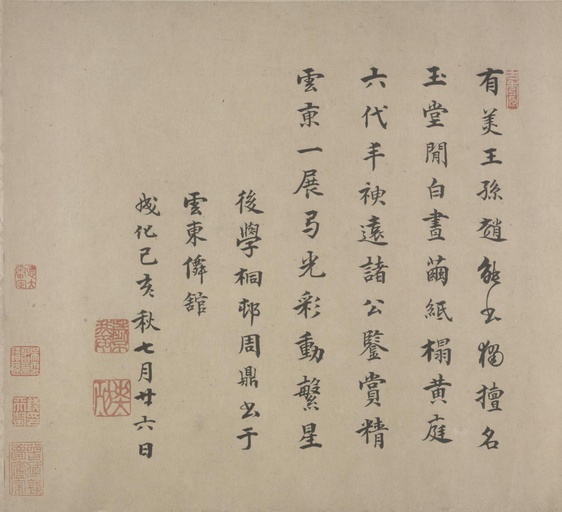 有美王孫趙能書獨擅名
玉堂閒白晝繭紙榻黃庭
六代丰神遠諸公鑒賞精
雲東一展弓光彩動繁星
後學桐邨周鼎書于
雲東僊舘
成化己亥秋七月廿六日